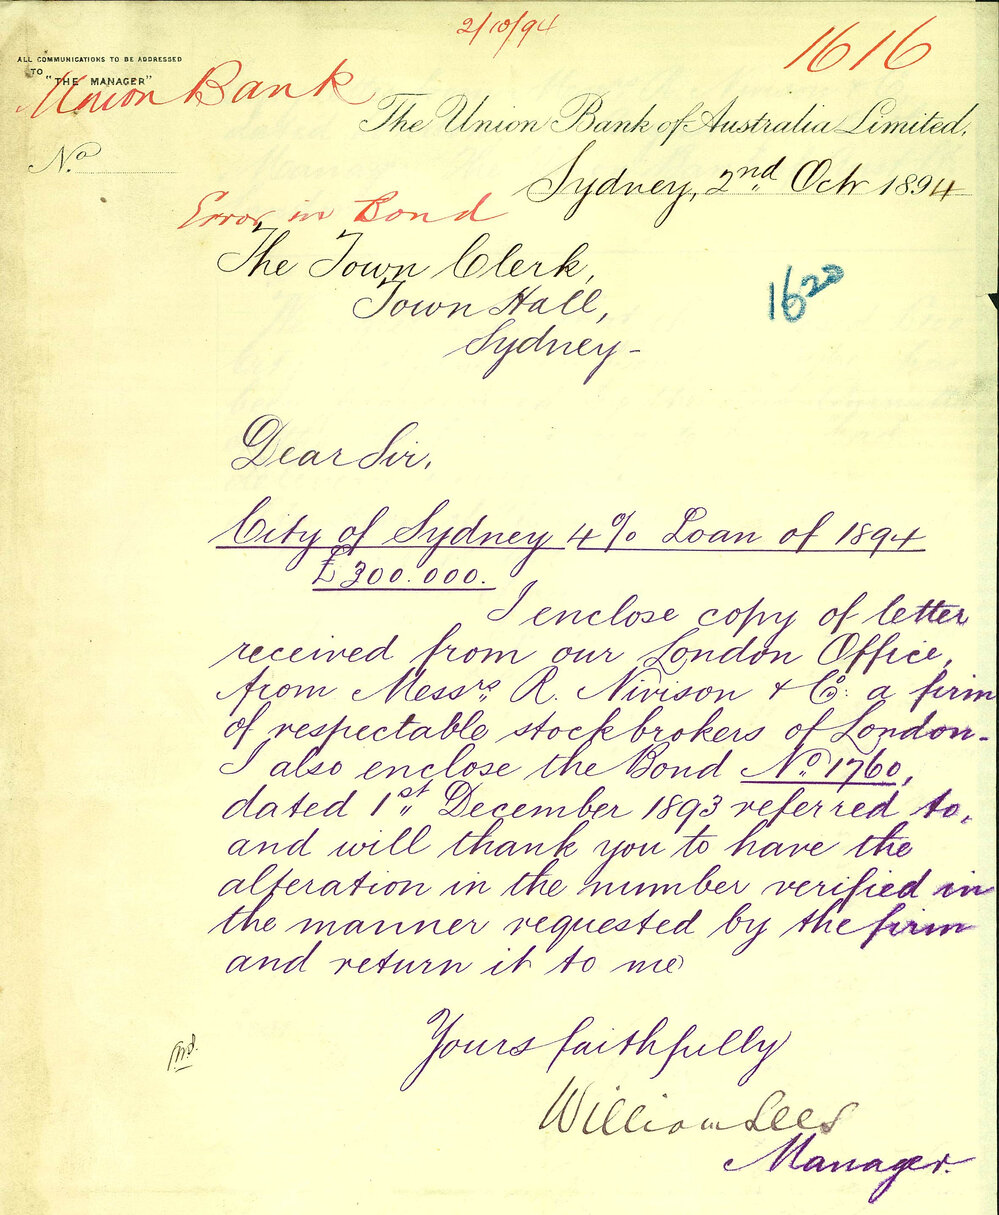 2/10/94
1616
ALL COMMUNICATIONS TO BE ADDRESSED
TO "THE MANAGER"
Union Bank
The Union Bank of Australia Limited.
No.
Sydney, 2nd Oct 1894
Error in Bond
The Town Clerk,
Town Hall,
Sydney-
1620
Dear Sir,
City of Sydney 4% Loan of 1894
£300.000.
I enclose copy of letter
received from our London Office,
from Messrs R. Nivison & Co: a firm
of respectable stockbrokers of London-
I also enclose the Bond No 1760,
dated 1st December 1893 referred to,
and will thank you to have the
alteration in the number verified in
the manner requested by the firm
and return it to me
Yours faithfully
William Lees
Manager.